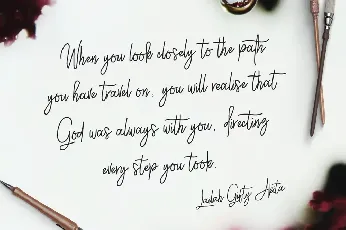 When you look closely to the path
you have travel on, you will realise that
God was always with you, directing
every step you took.